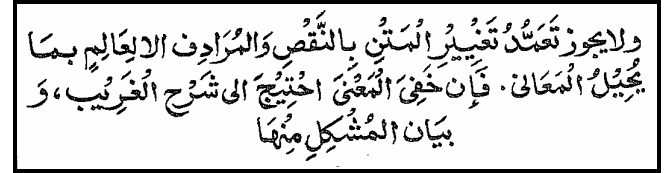 ولا يجوز تَعَمُّدُ تَغْيِيْرِ الْمَتْنِ بِالنَّقْصِ وَالْمُرَادِفِ الا لِعَالِمٍ بِمَا
يُحِيْلُ الْمَعَانى. فَإِن خَفِىَ الْمَعْنىَ احْتِيْجَ الى شَرْحِ الْغَرِيْبِ، وَ
بيَان الْمُشْكِلِ مِنْهَا